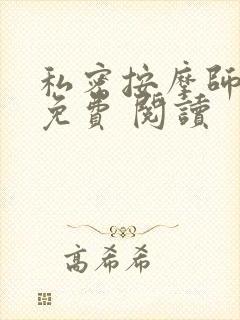 私密按摩師
免費 閱讀
高希希